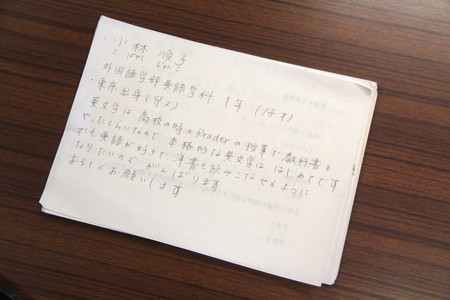 ・小林 順子
こばやし じゅんこ
外国語学部英語学科 1年 (
・東京出身(
・英文学は 高校の時のReaderの授業で 教科書を
やったくらいなので、本格的な英文学は はじめてです
でも英語が好きで 洋書も読みこなせるように
なりたいので がんばります
よろしくお願いします